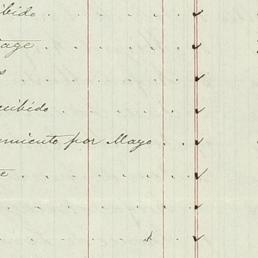 ibido
tage
s
cibido
miento por Mayo
e